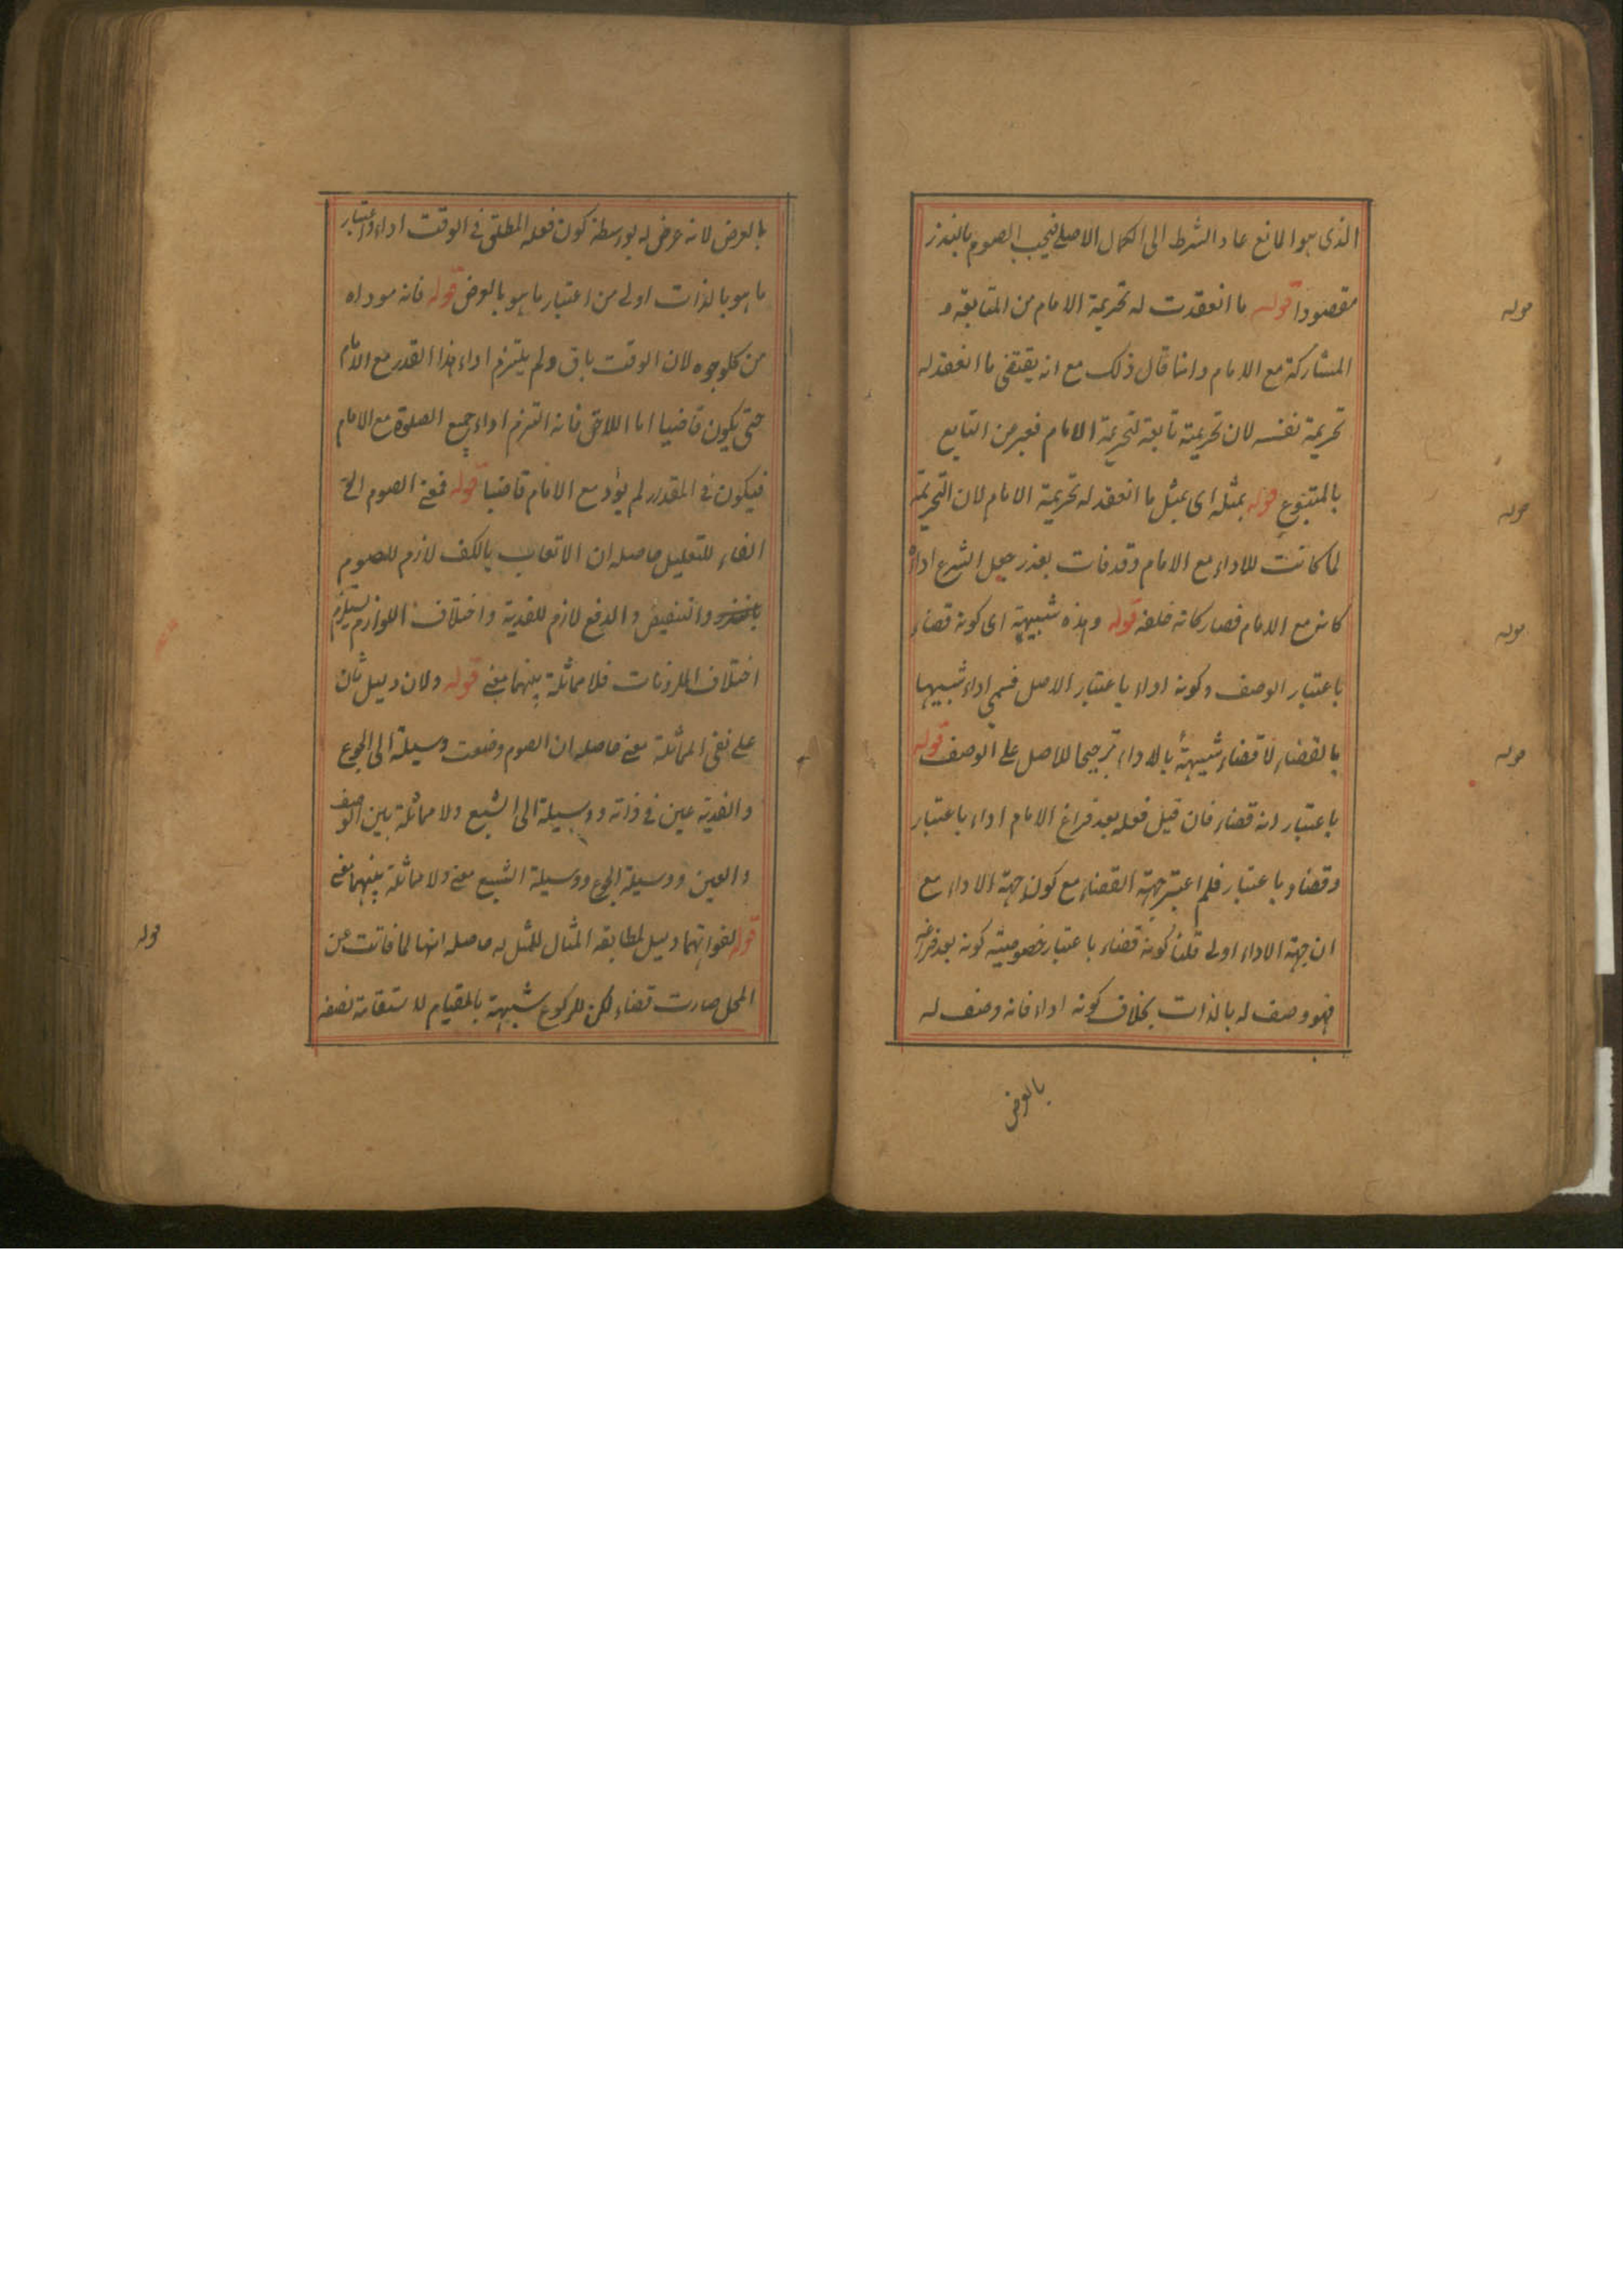 الذى هو المانع عاد الشرط الى الكمال الاصلى فيجب الصوم بالنذر
مقصودا قوله ما انعقدت له تحريمة الامام من المتابعة و
المشاركة مع الامام وانما قال ذلك مع انه يقتضى ما انعقد له
تحريمة نفسه لان تحريمته تابعة لتحريمة الامام فعبر عن التابع
بالمتبوع قوله بمثله اى بمثل ما انعقد له تحريمة الامام لان التحريمة
لما كانت للاداء مع الامام وقد فات بعذر جعل الشرع اداؤه
كائن مع الامام فصار كانه خلفه قوله وهذه شبيهة اى كونه قضاء
باعتبار الوصف وكونه اداء باعتبار الاصل فسمى اداء شبيها
بالقضاء لا قضاء شبيهة بالاداء ترجيحا للاصل على الوصف قوله
باعتبار انه قضاء فان قيل فعله بعد فراغ الامام اداء باعتبار
وقضاء باعتبار فلم اعتبر جهة القضاء مع كون جهة الاداء مع
ان جهة الاداء اولى قلنا كونه قضاء باعتبار خصوصيته كونه بعد فراغه
فهو وصف له بالذات بخلاف كونه اداء فانه وصف له
بالعرض
قوله
قوله
قوله
قوله
بالعرض لانه عرض له بواسطة كون فعله المطلق فى الوقت اداء واعتبار
ما هو بالذات اولى من اعتبار ما هو بالعرض قوله فانه موداه
من كل وجوه لان الوقت باق ولم يلتزم اداء هذا القدر مع الامام
حتى يكون قاضيا اما اللاحق فانه التزم اداء جميع الصلوة مع الامام
فيكون فى المقدر لم يؤد مع الامام قاضيا قوله فمعنى الصوم الخ
الفاء للتعليل حاصله ان الاتعاب بالكف لازم للصوم
والتنقيص والدفع لازم للفدية واختلاف اللوازم يستلزم
اختلاف الملزومات فلا مماثلة بينهما معنى قوله ولان دليل ثان
على نفى المماثلة معنى حاصله ان الصوم وضعت وسيلة الى الجوع
والفدية عين فى ذاته ووسيلة الى الشبع ولا مماثلة بين الوصف
والعين ووسيلة الجوع ووسيلة الشبع معنى ولا مماثلة بينهما معنى
قوله لفواتهما دليل لمطابقة المثال للمثل له حاصله انها لما فاتت عن
المحل صارت قضاء لكن للركوع شبيهة بالقيام لاستقامة نصفه
قوله